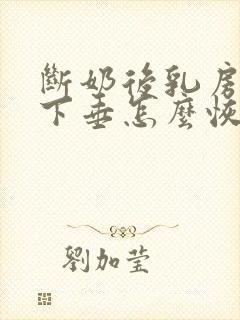 斷奶後乳房
下垂怎麼恢
劉加莹